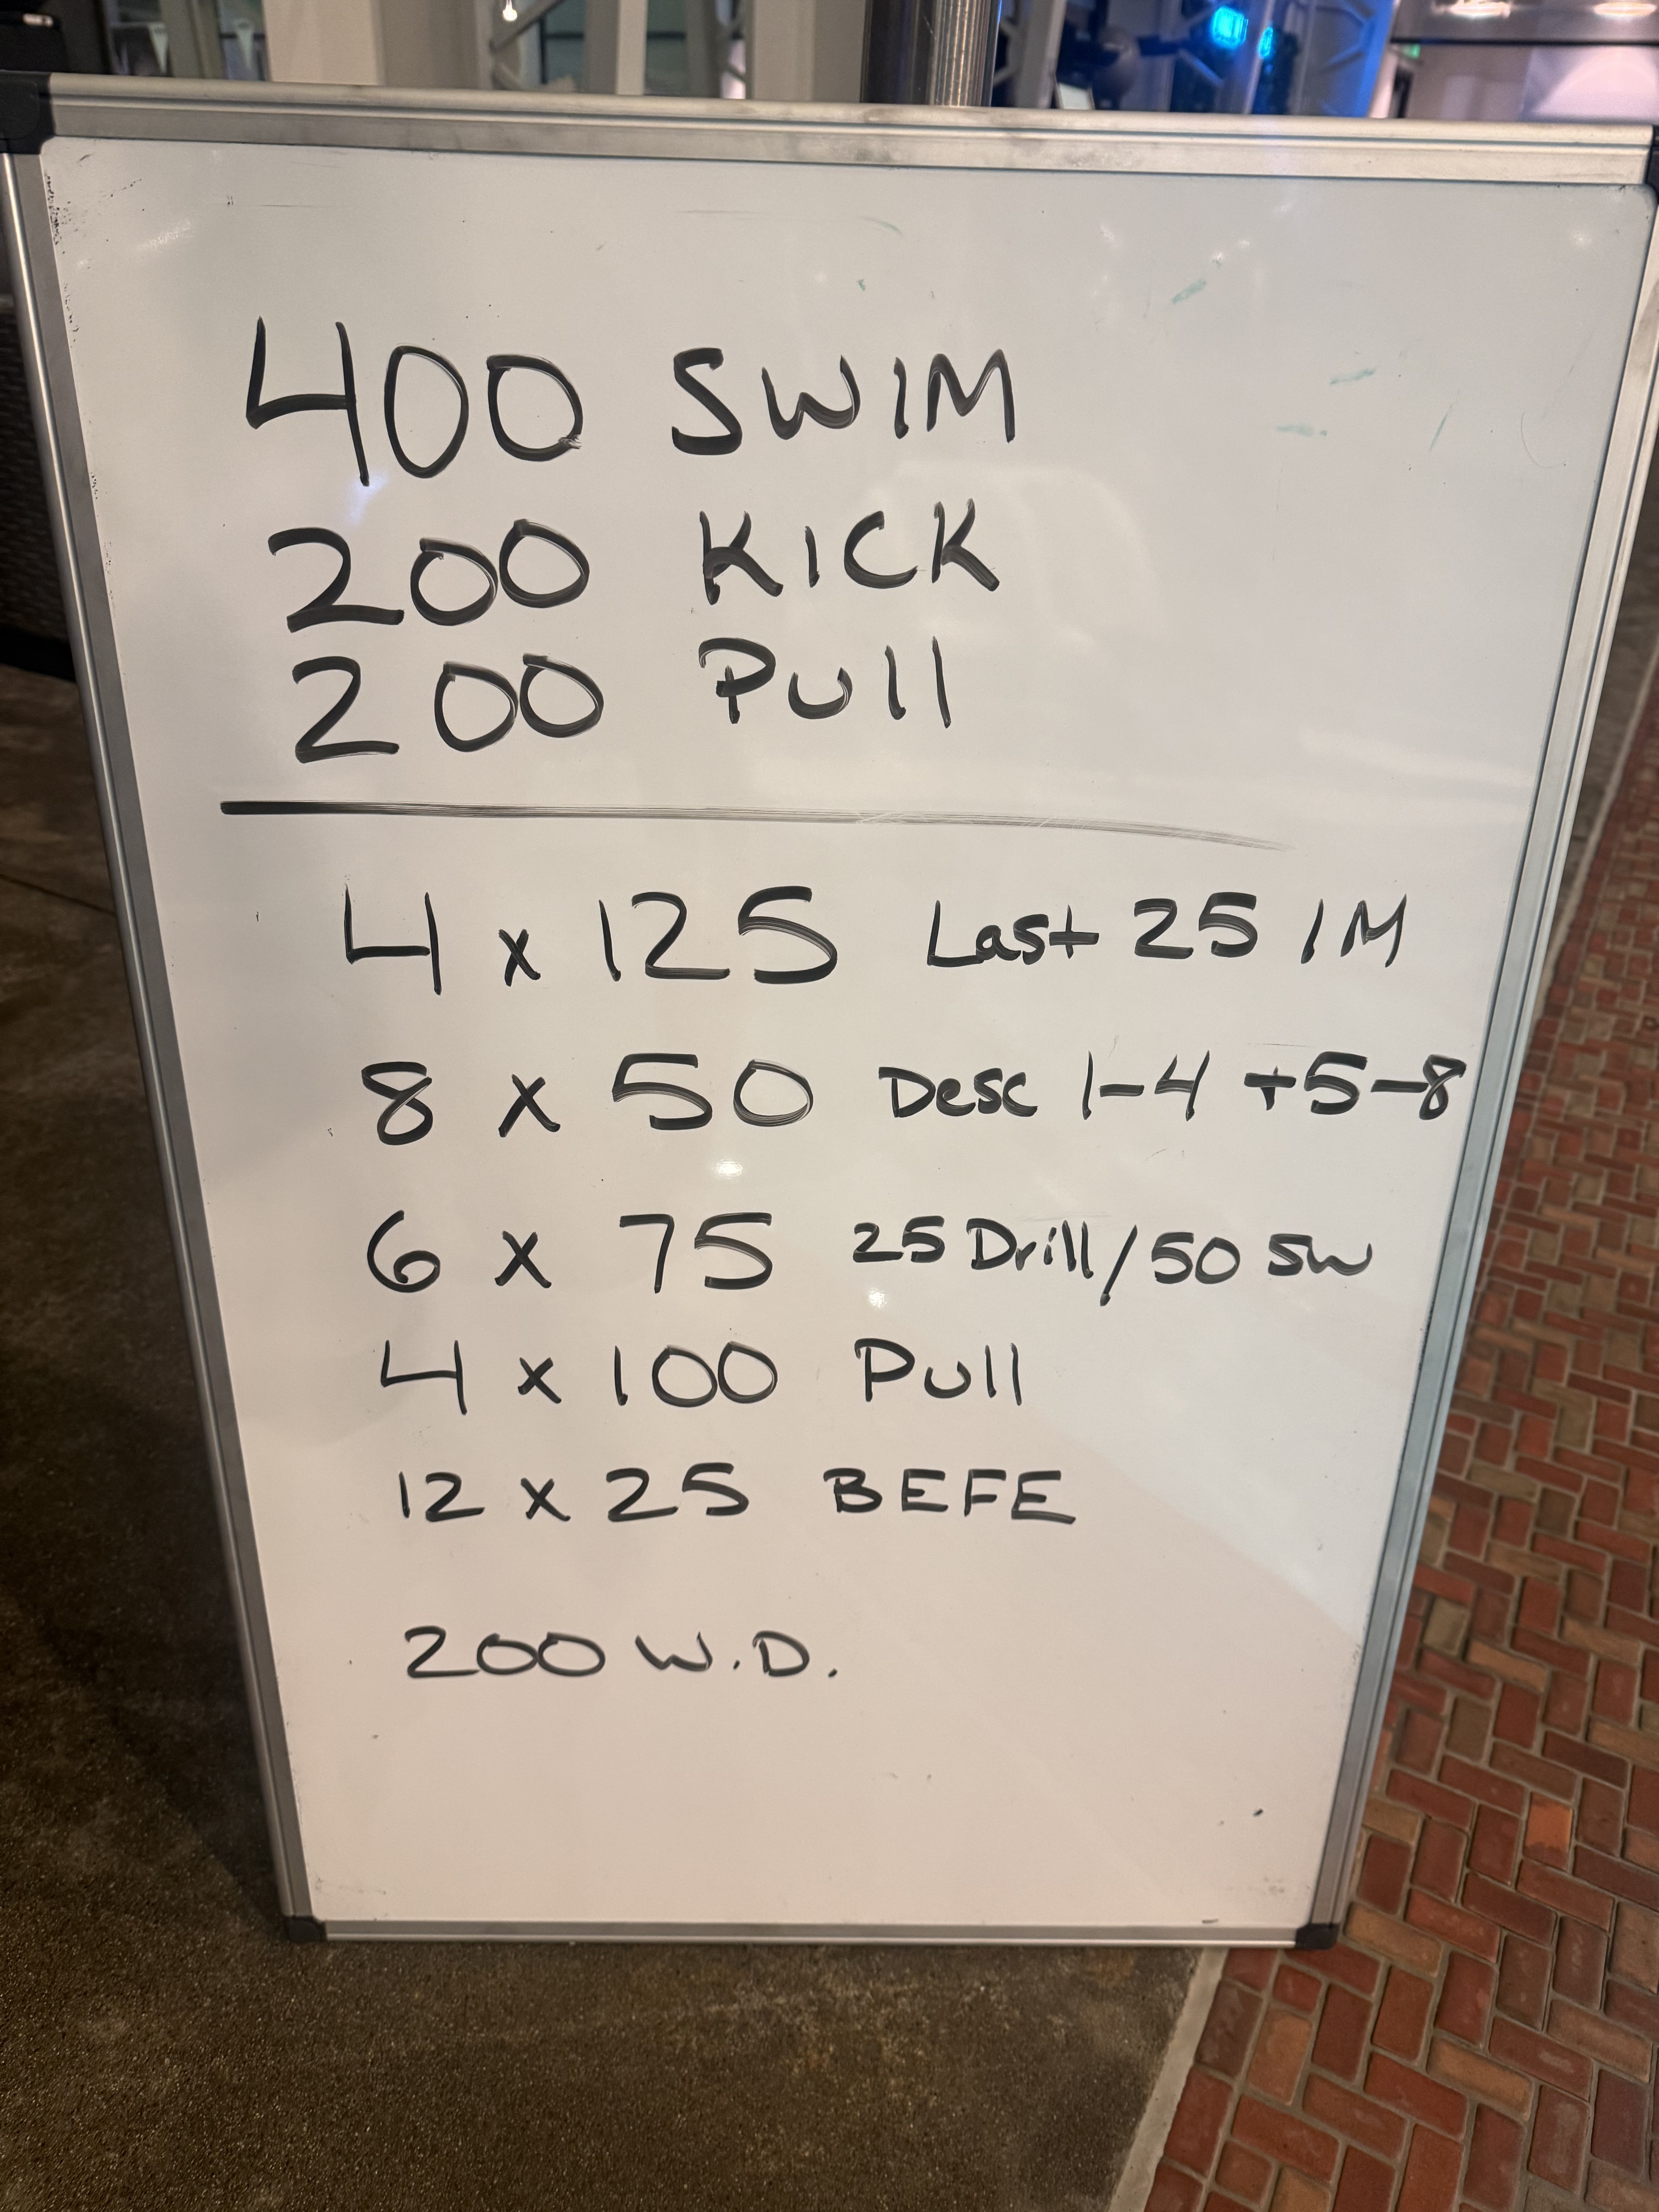 400 SWIM
200 KICK
200 Pull
4 x 125 Last 25 IM
8 x 50 Desc 1-4 +5-8
6 x 75 25 Drill/50 SW
4 x 100 Pull
12 x 25 BEFE
200 W.D.